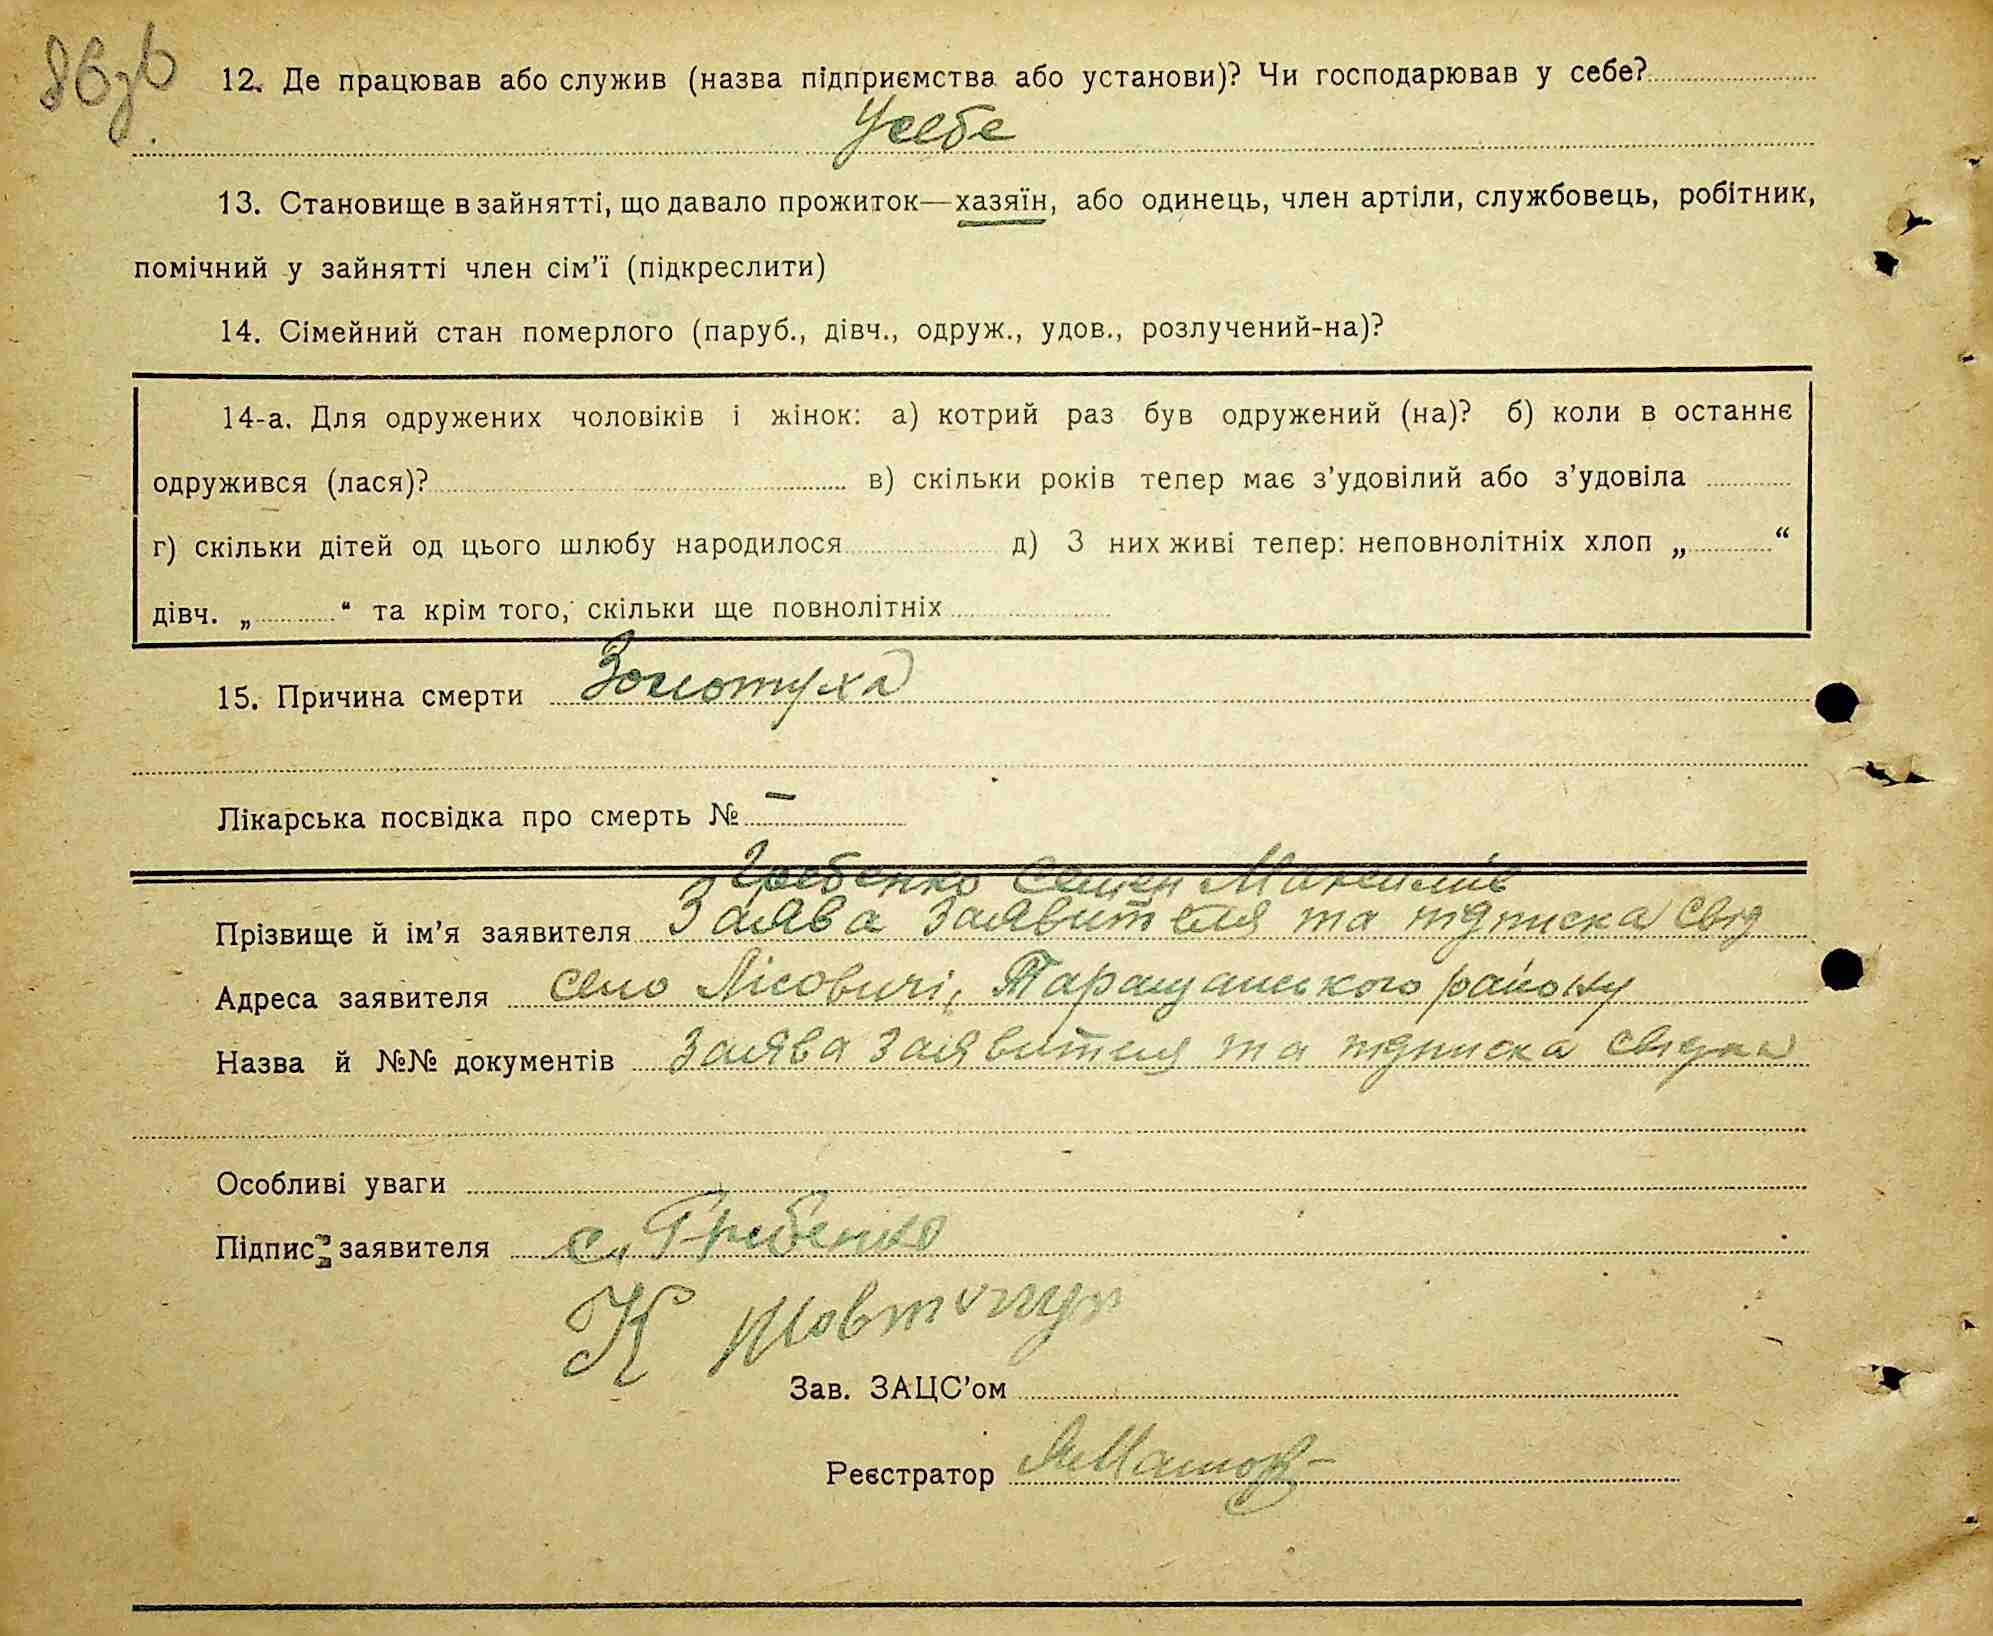 86зв
12. Де працював або служив (назва підприємства або установи)? Чи господарював у себе?
У себе
13. Становище в зайнятті, що давало прожиток—хазяїн, або одинець, член артіли, службовець, робітник,
помічний у зайнятті член сім’ї (підкреслити)
14. Сімейний стан померлого (паруб., дівч., одруж., удов., розлучений-на)?
14-а. Для одружених чоловіків і жінок: а) котрий раз був одружений (на)? б) коли в останнє
одружився (лася)? в) скільки років тепер має з’удовілий або з’удовіла
г) скільки дітей од цього шлюбу народилося д) З них живі тепер: неповнолітніх хлоп „ “
дівч. „ “ та крім того, скільки ще повнолітніх
15. Причина смерти Золотуха
Лікарська посвідка про смерть № –
Гребенко Семен Максимів
Прізвище й ім’я заявителя Заява заявителя та підписка свід
Адреса заявителя село Лісовичі, Таращанського району
Назва й №№ документів Заява заявителя та підписка свідка
Особливі уваги
Підпис заявителя С. Гребенко
К
Зав. ЗАЦС’ом
Реєстратор